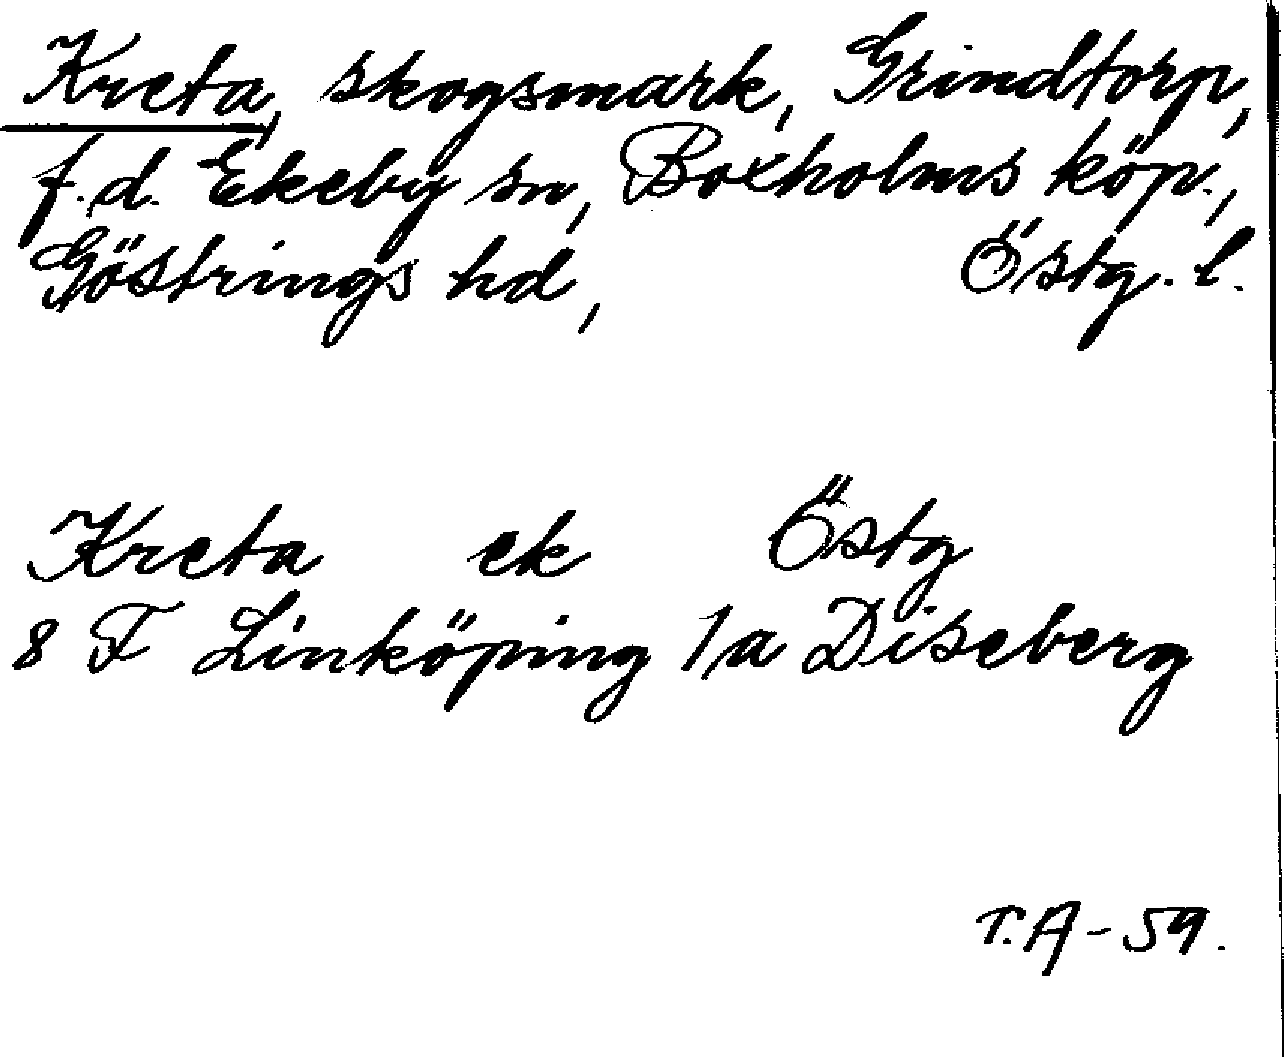 Kreta, skogsmark, Grindtorp,
f.d. Ekeby sn, Boxholms köp.,
Göstrings hd, Östg. l.
Kreta ek Östg
8 F Linköping 1a Diseberg
T.A-59.